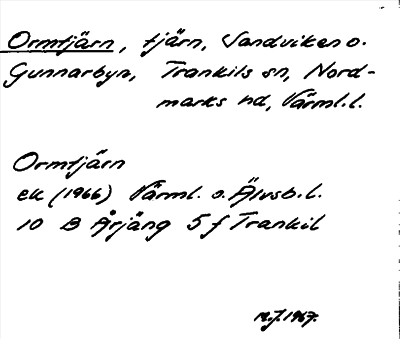 Ormtjärn, tjärn, Sandviken o.
Gunnarbyn, Trankils sn, Nord-
marks hd, Värml.l.
Ormtjärn
ek (1966) Värml. o. Älvsb. l.
10 B Årjäng 5 f Trankil
M.J. 1967.